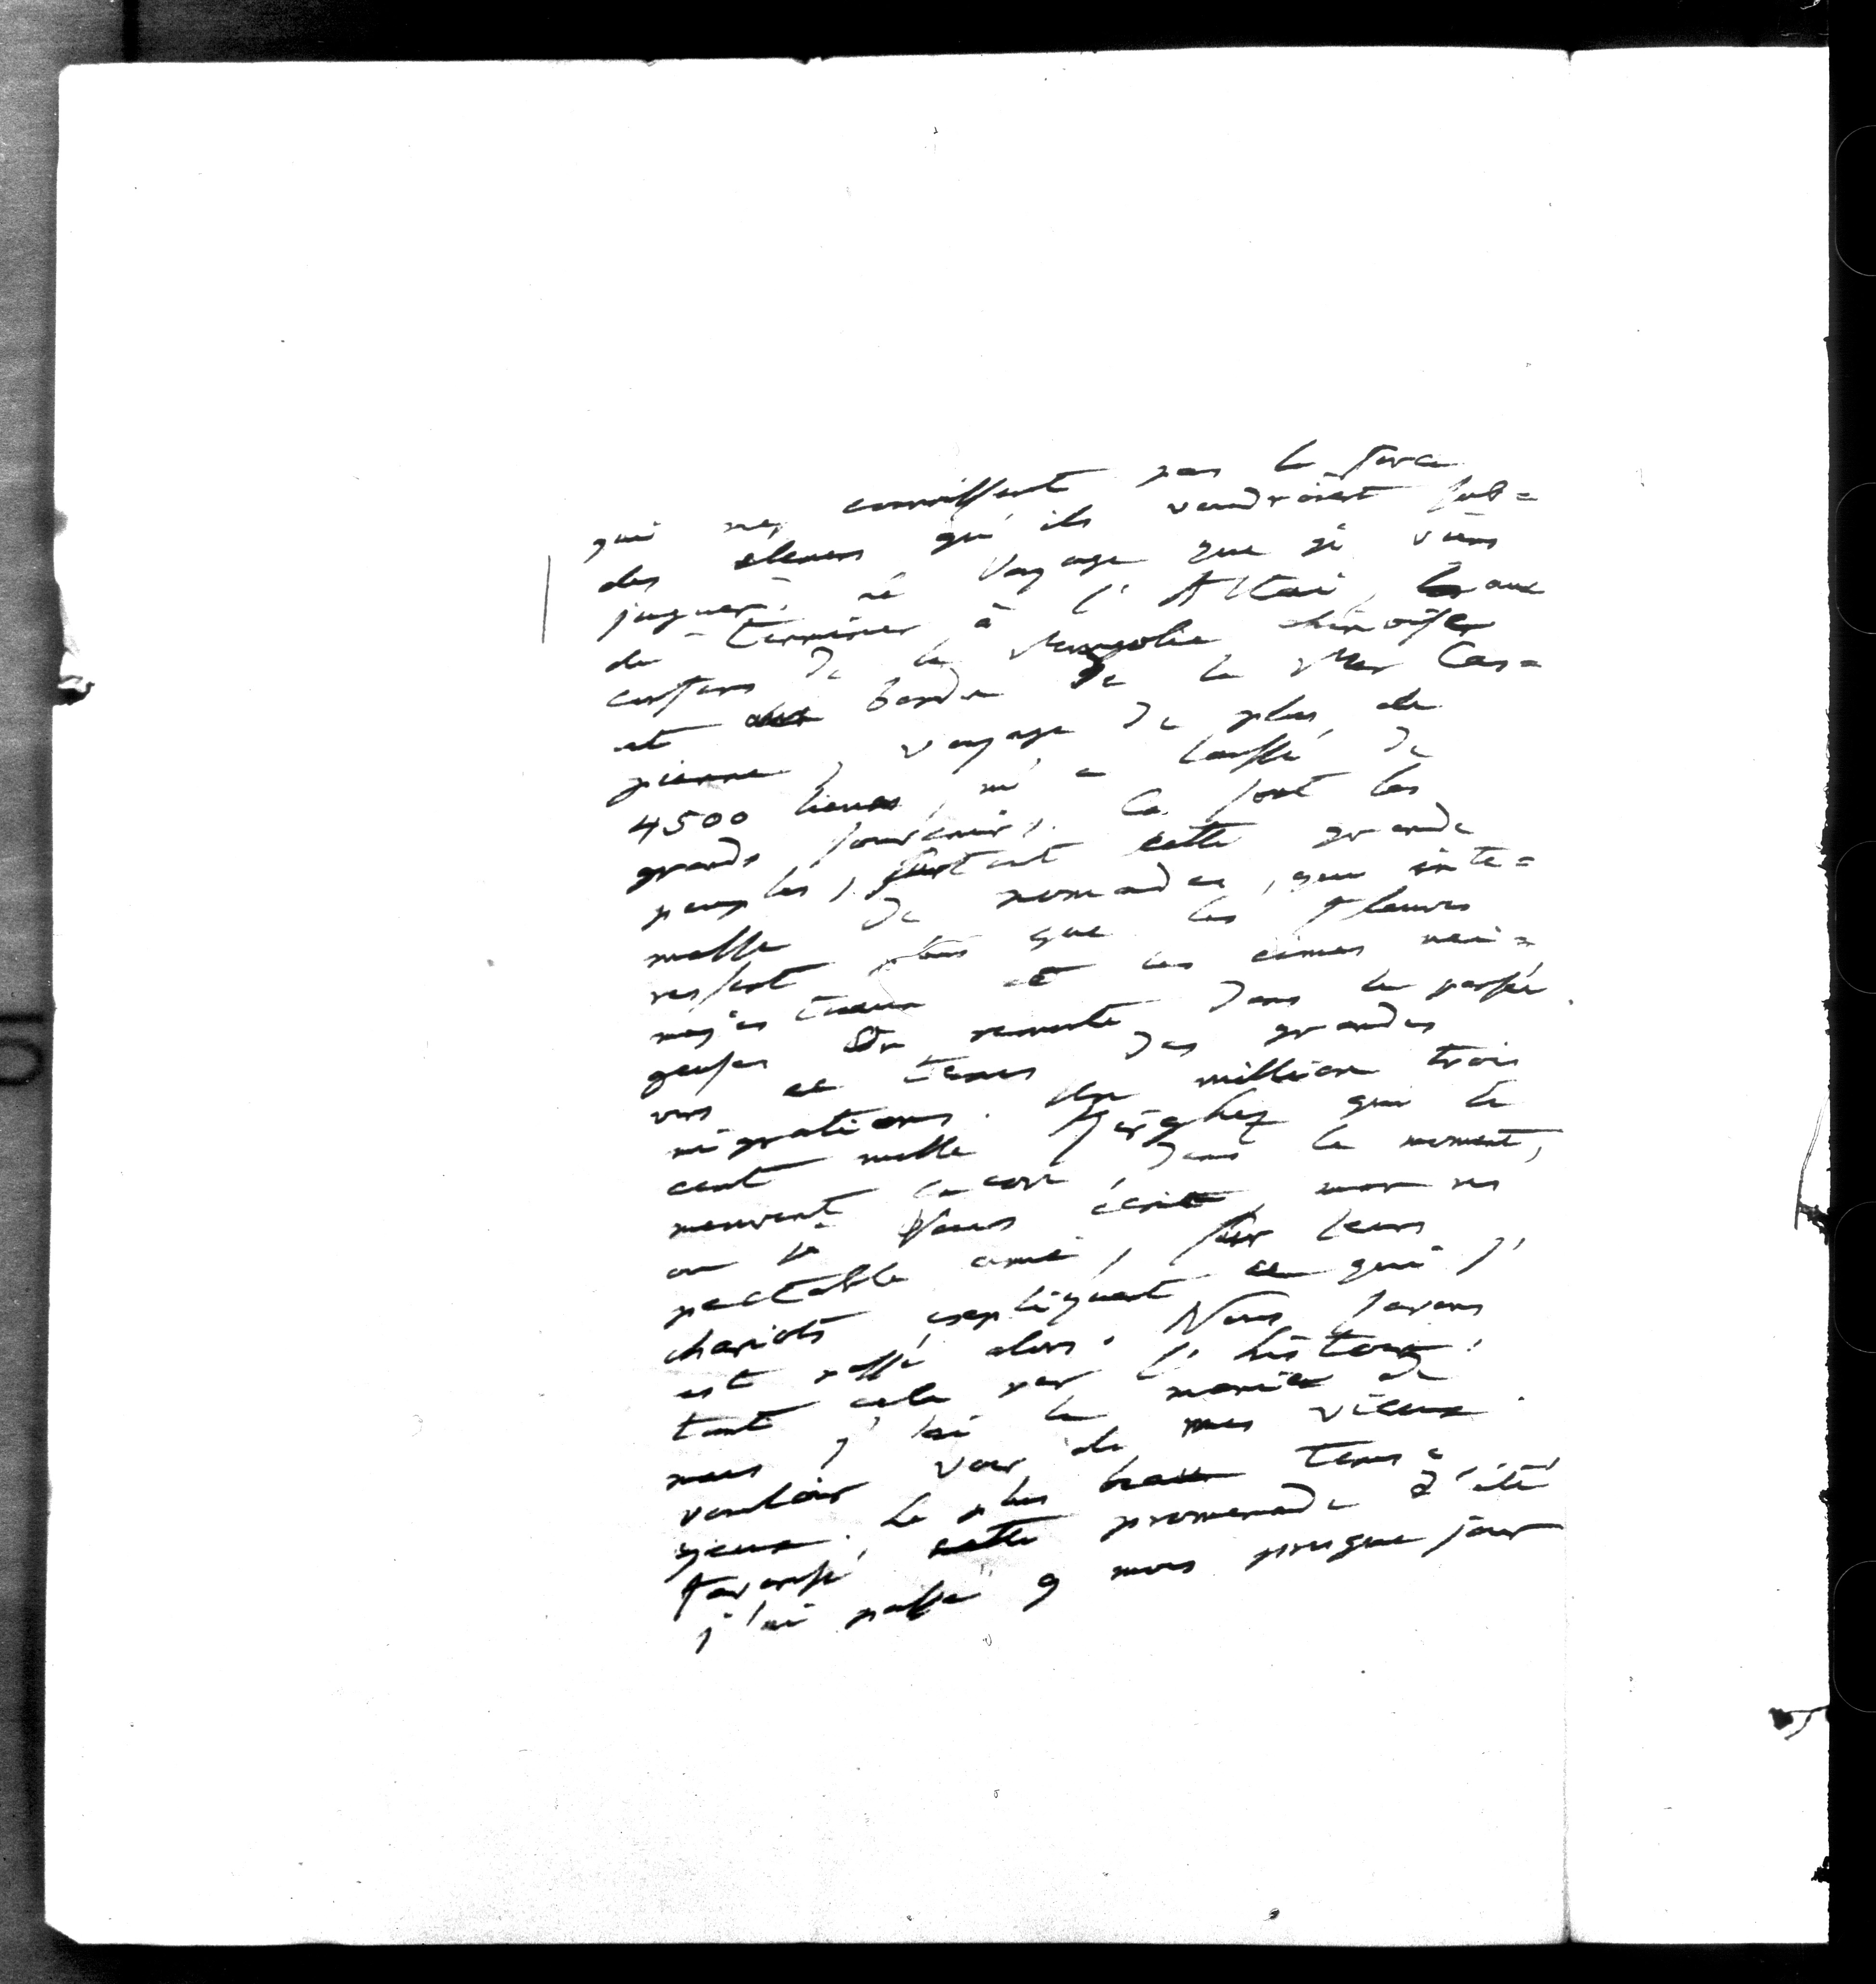 qui ne connoissent pas la force
des elemens qu'ils voudroient sub=
juguer. Le voyage que je viens
de terminer à l'Altai, aux
confins de la Mongolie chinoise
et aux bords de la Mer Cas=
pienne, voyage de plus de
4500 lieues, m'a laissé de
grands souvenirs. Ce sont les
peuples, surtout cette grande
masse de nomades, qui inte=
ressent plus que les fleuves
majestueux et les cimes nei=
geuses. On remonte dans le passé
vers ce tems des grandes
migrations. Un million trois
cent mille Kirghiz qui se
meuvent encore, dans le moment,
où je Vous écris, mon res
pectable ami, sur leurs
chariots expliquent ce qui s'
est passé alors. Nous savons
tout cela par l'histoire.
mais j'ai la manie de
vouloir voir de mes vieux
yeux. Le plus beau tems a
favorisé cette promenade d'été
j'ai passé 9 mois presque jour